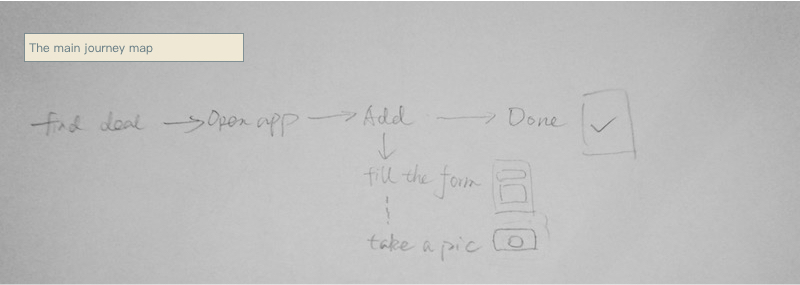 The main journey map
find deal → Open app → Add → Done
fill the form
take a pic